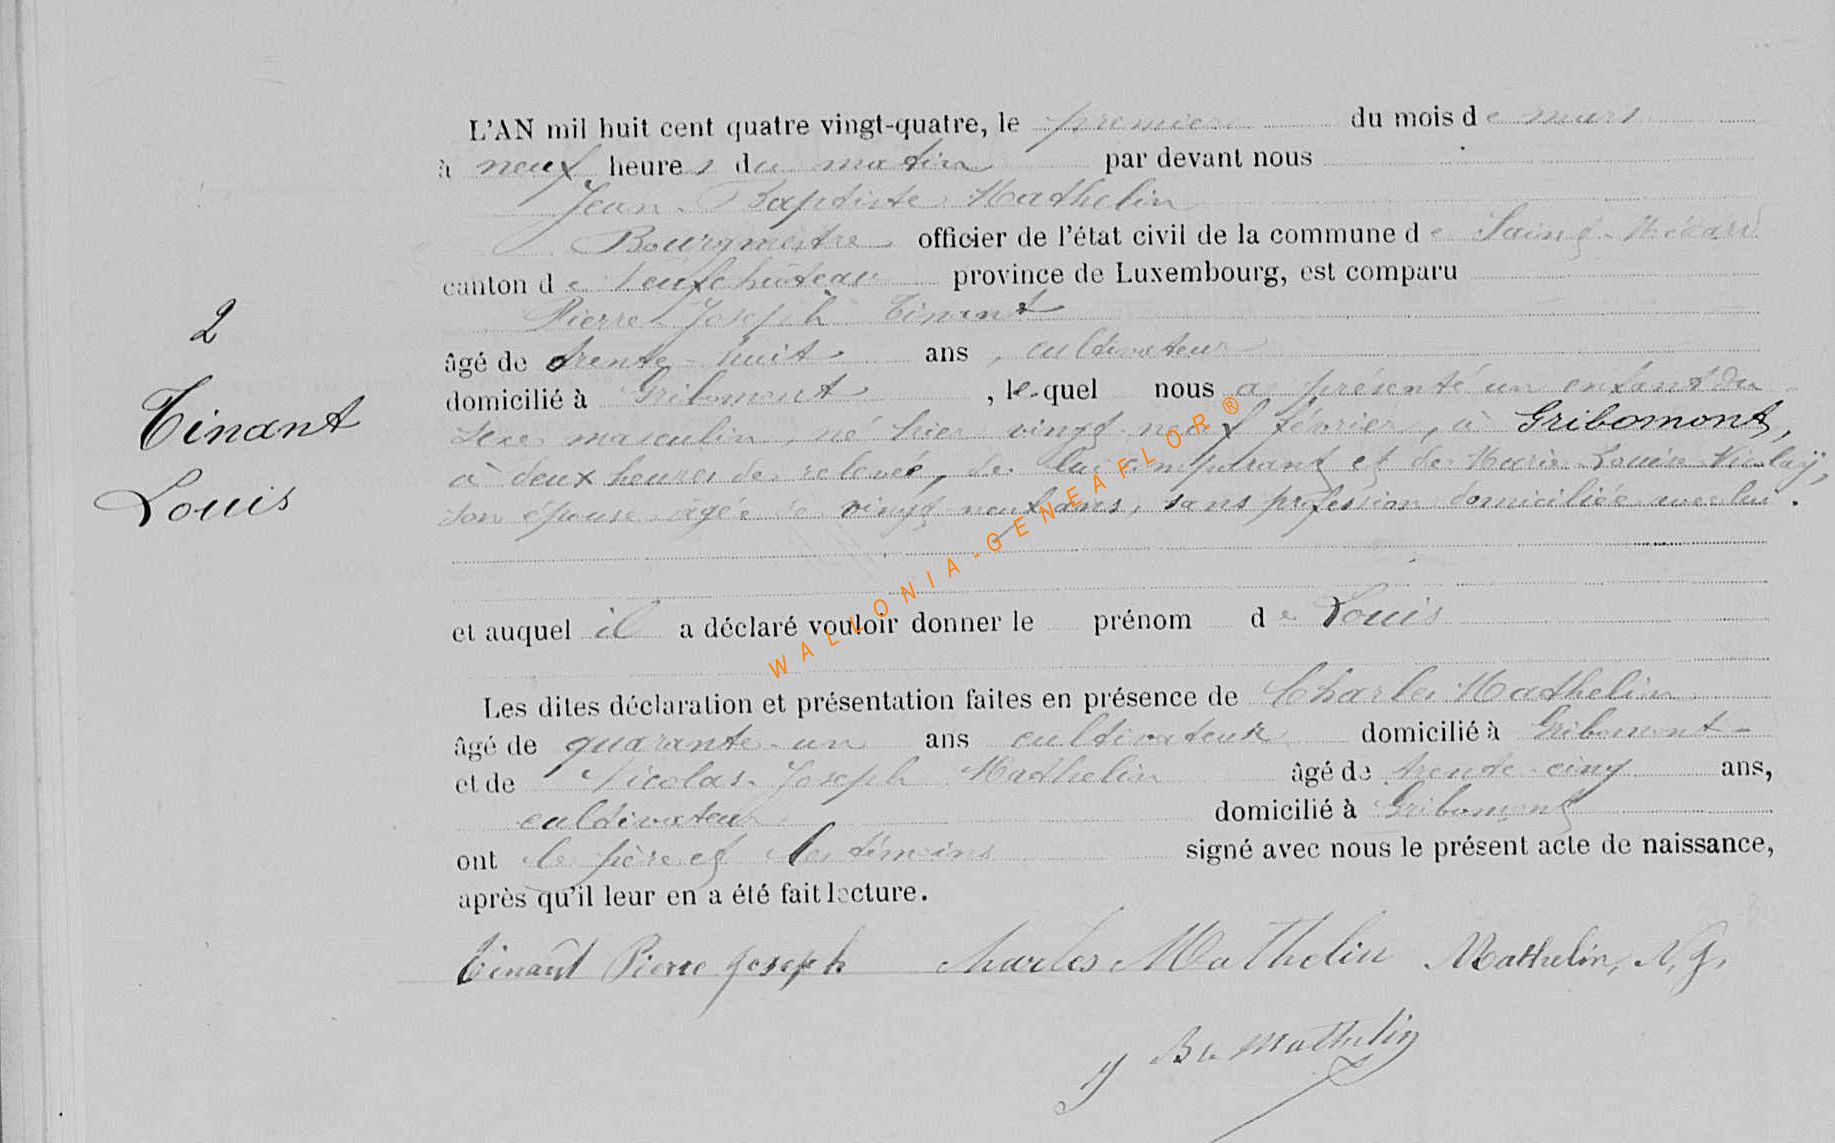 L'AN mil huit cent quatre vingt-quatre, le premier du mois de mars
à neuf heures du matin par devant nous
Jean-Baptiste Mathelin
Bourgmestre officier de l'état civil de la commune de Saint-Médard
canton de Neufchâteau province de Luxembourg, est comparu
Pierre Joseph Tinant
âgé de trente-huit ans, cultivateur
domicilié à Gribomont, lequel nous a présenté un enfant du
sexe masculin, né hier vingt-neuf février, à Gribomont,
à deux heures de relevée, de lui comparant et de Marie-Louise Nicolaÿ,
son épouse âgée de vingt-neuf ans, sans profession domiciliée avec lui.
et auquel il a déclaré vouloir donner le prénom de Louis
Les dites déclaration et présentation faites en présence de Charles Mathelin
âgé de quarante-un ans cultivateur domicilié à Gribomont
et de Nicolas-Joseph Mathelin âgé de trente-cinq ans,
cultivateur domicilié à Gribomont
ont le père et les témoins signé avec nous le présent acte de naissance,
après qu'il leur en a été fait lecture.
Tinant Pierre Joseph Charles Mathelin Mathelin, N. J.
J Bte Mathelin
2
Tinant
Louis
WALLONIA-GENEAFLOR®